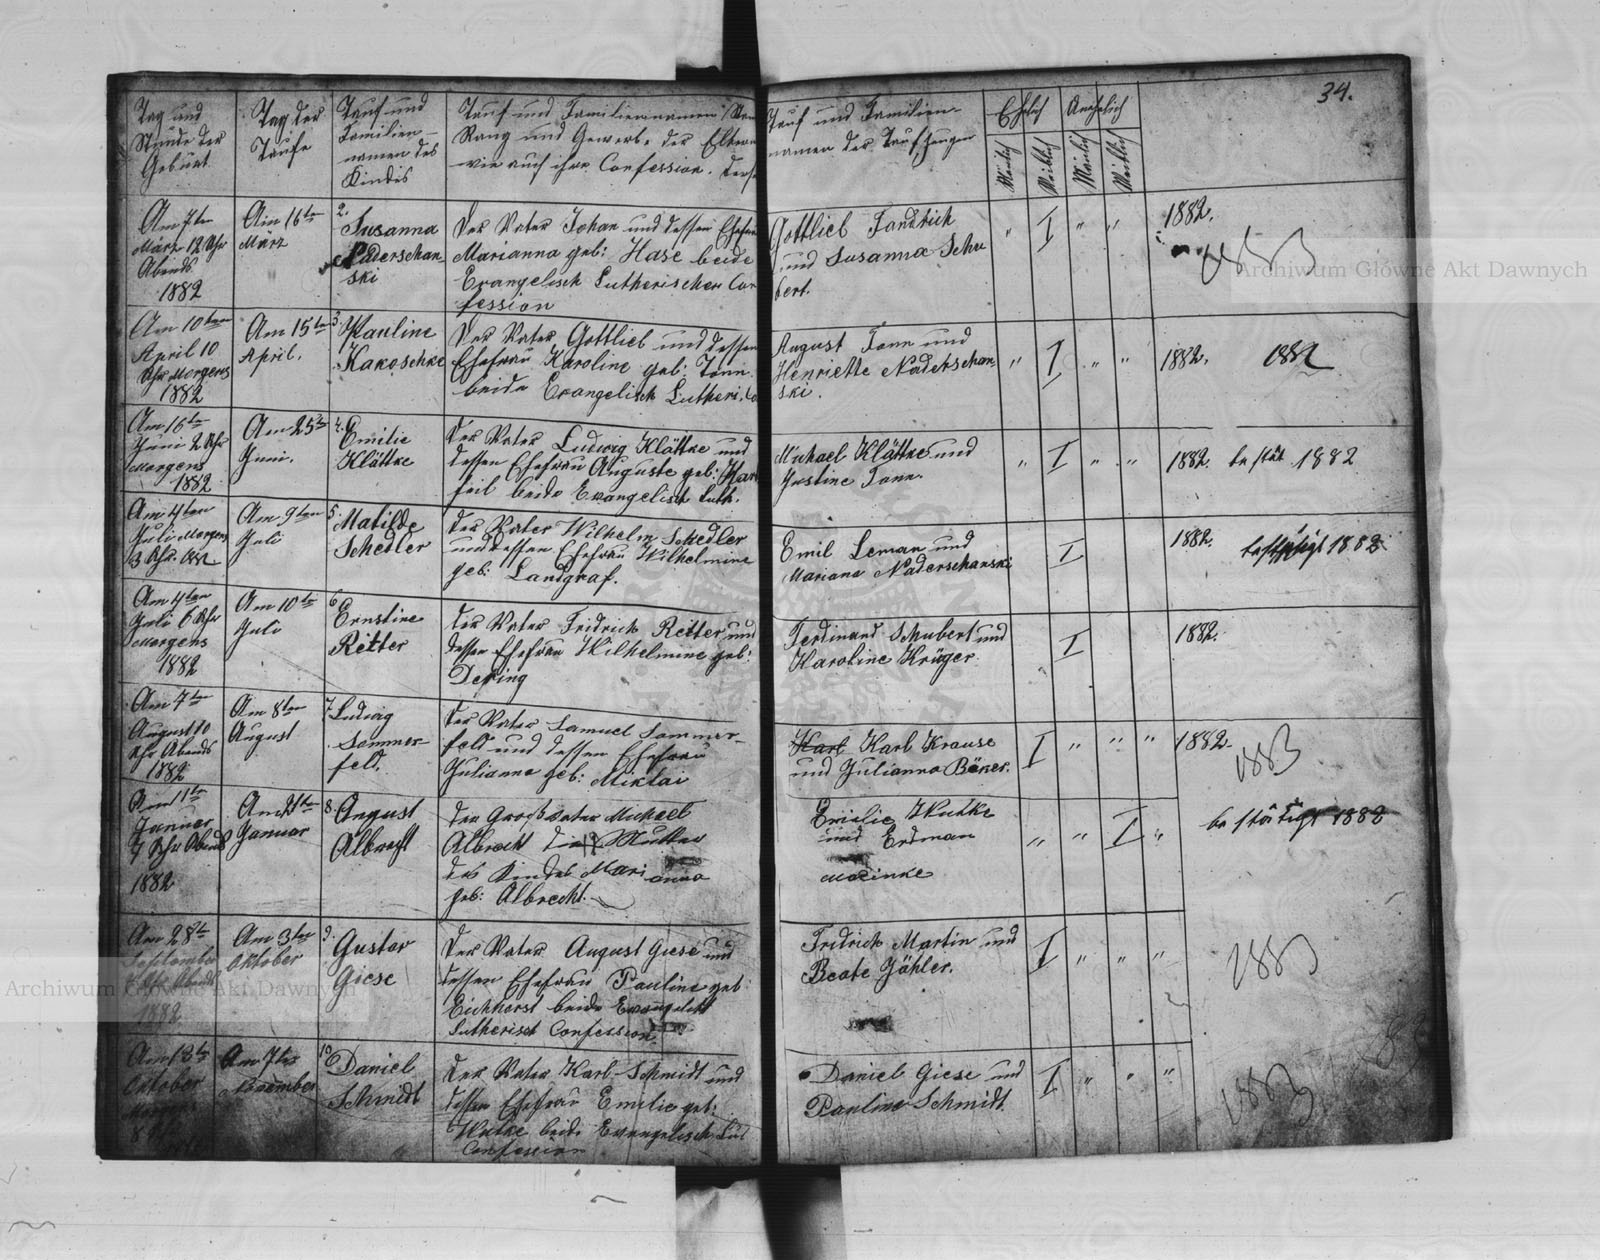 34.
Tag und
Stunde der
Geburt
Tag der
Taufe
Tauf und
Familien-
namen des
Kindes
Tauf und Familiennamen
Rang und Gewerbe der Eltern
wie auch ihre Confession.
Tauf und Familien-
namen der Taufzeugen
Ehelich
Unehelich
Mänlich
Weiblich
Mänlich
Weiblich
Am 7ten
März 12 Uhr
Abends
1882
Am 16ten
März
2.
Susanna
Naderschan-
ski
Der Vater Johan und dessen
Marianna geb: Hase beide
Evangelisch Lutherischer Con
fession
Gottlieb Fandrich
und Susanna Schu
bert.
" I " "
1882.
1883
Am 10ten
April 10
Uhr Morgens
1882
Am 15ten
April.
3.
Pauline
Kakoschke
Der Vater Gottlieb und dessen
Ehefrau Karoline geb: Tonn
beide Evangelisch Lutheri.
August Tonn und
Henriette Naderschan
ski.
" I " "
1882.
1882
Am 16ten
Juni 2 Uhr
Morgens
1882
Am 25
Juni.
4.
Emilie
Klättke
Der Vater Ludwig Klättke und
dessen Ehefrau Auguste geb:
feil beide Evangelisch Luth.
Michael Klättke und
Justine Tonn.
" I " "
1882. bestät 1882
Am 4ten
Juli Morgens
3 Uhr. 1882
Am 9ten
Juli
5.
Matilde
Schedler
Der Vater Wilhelm Schedler
und dessen Ehefrau Wilhelmine
geb: Landgraf.
Emil Leman und
Mariana Naderschanski
I
1882. 1882
Am 4ten
Juli 6 Uhr
Morgens
1882
Am 10ten
Juli
6.
Ernstine
Ritter
Der Vater Fridrich Ritter und
dessen Ehefrau Wilhelmine geb:
Ferdinand Schubert und
Karoline Krüger.
I
1882.
Am 7ten
August 10
Uhr Abends
1882
Am 8ten
August
7.
Ludwig
Sommer-
feld.
Der Vater Samuel Sommer-
feld und dessen Ehefrau
Julianna geb: Miklai
Karl Karl Krause
und Julianna Bäker.
I " " "
1882.
1883
Am 11ten
Januar
7 Uhr Abends
1882
Am 21ten
Januar
8.
August
Albrecht
Der Großvater Michael
Albrecht die Mutter
des Kindes Marianna
geb: Albrecht.
Emilie Wutke
und Erdman
" " I "
bestätigt 1882
Am 28ten
September
1882
Am 3ten
Oktober
9.
Gustav
Giese
Der Vater August Giese und
dessen Ehefrau Pauline geb
Eichhorst beide Evangelisch
Lutherisch Confession.
Fridrich Martin und
Beate Jähler.
I " " "
1883
Am 13ten
Oktober
Morgens
Am 7ten
November
10
Daniel
Schmidt
Der Vater Karl Schmidt und
dessen Ehefrau Emilie geb:
Wutke beide Evangelisch Lut
Confession
Daniel Giese und
Pauline Schmidt.
I " " "
1883
Archiwum Główne Akt Dawnych
Archiwum Główne Akt Dawnych